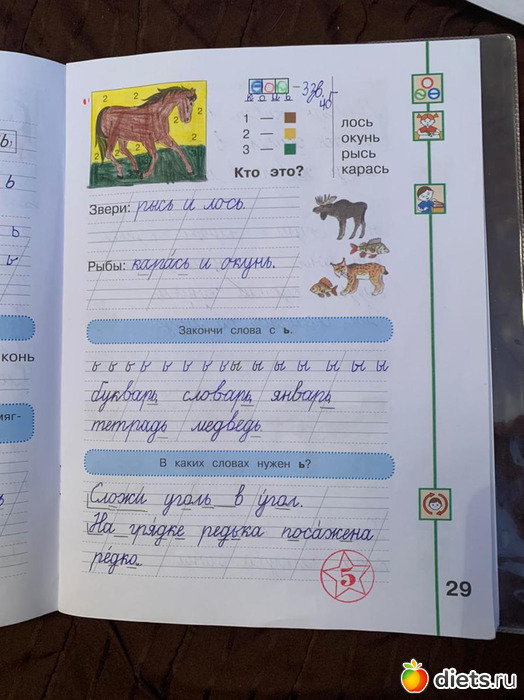 2 2 2 2 2 2
- 3 зв,
К О Н Ь 4б
1 —
2 —
3 —
лось
окунь
рысь
карась
Кто это?
Звери: рысь и лось.
Рыбы: карась и окунь.
Закончи слова с ь.
ь ь ь ь ь ь ь ь ь ь ы ы ы ы ы ы ы ы
букварь словарь январь
тетрадь медведь
В каких словах нужен ь?
Сложи уголь в угол.
На грядке редька посажена
редко.
5
29
ь
ь
ь
ь
конь
мяг-
diets.ru